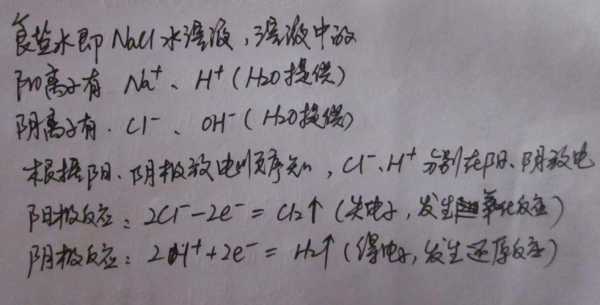 食盐水即 NaCl 水溶液，溶液中的
阳离子有 Na⁺、H⁺(H₂O提供)
阴离子有. Cl⁻、OH⁻(H₂O提供)
根据阳.阴极放电顺序知，Cl⁻、H⁺ 分别在阳.阴放电
阳极反应：2Cl⁻-2e⁻=Cl₂↑(失电子，发生氧化反应)
阴极反应：2H⁺+2e⁻=H₂↑(得电子，发生还原反应)